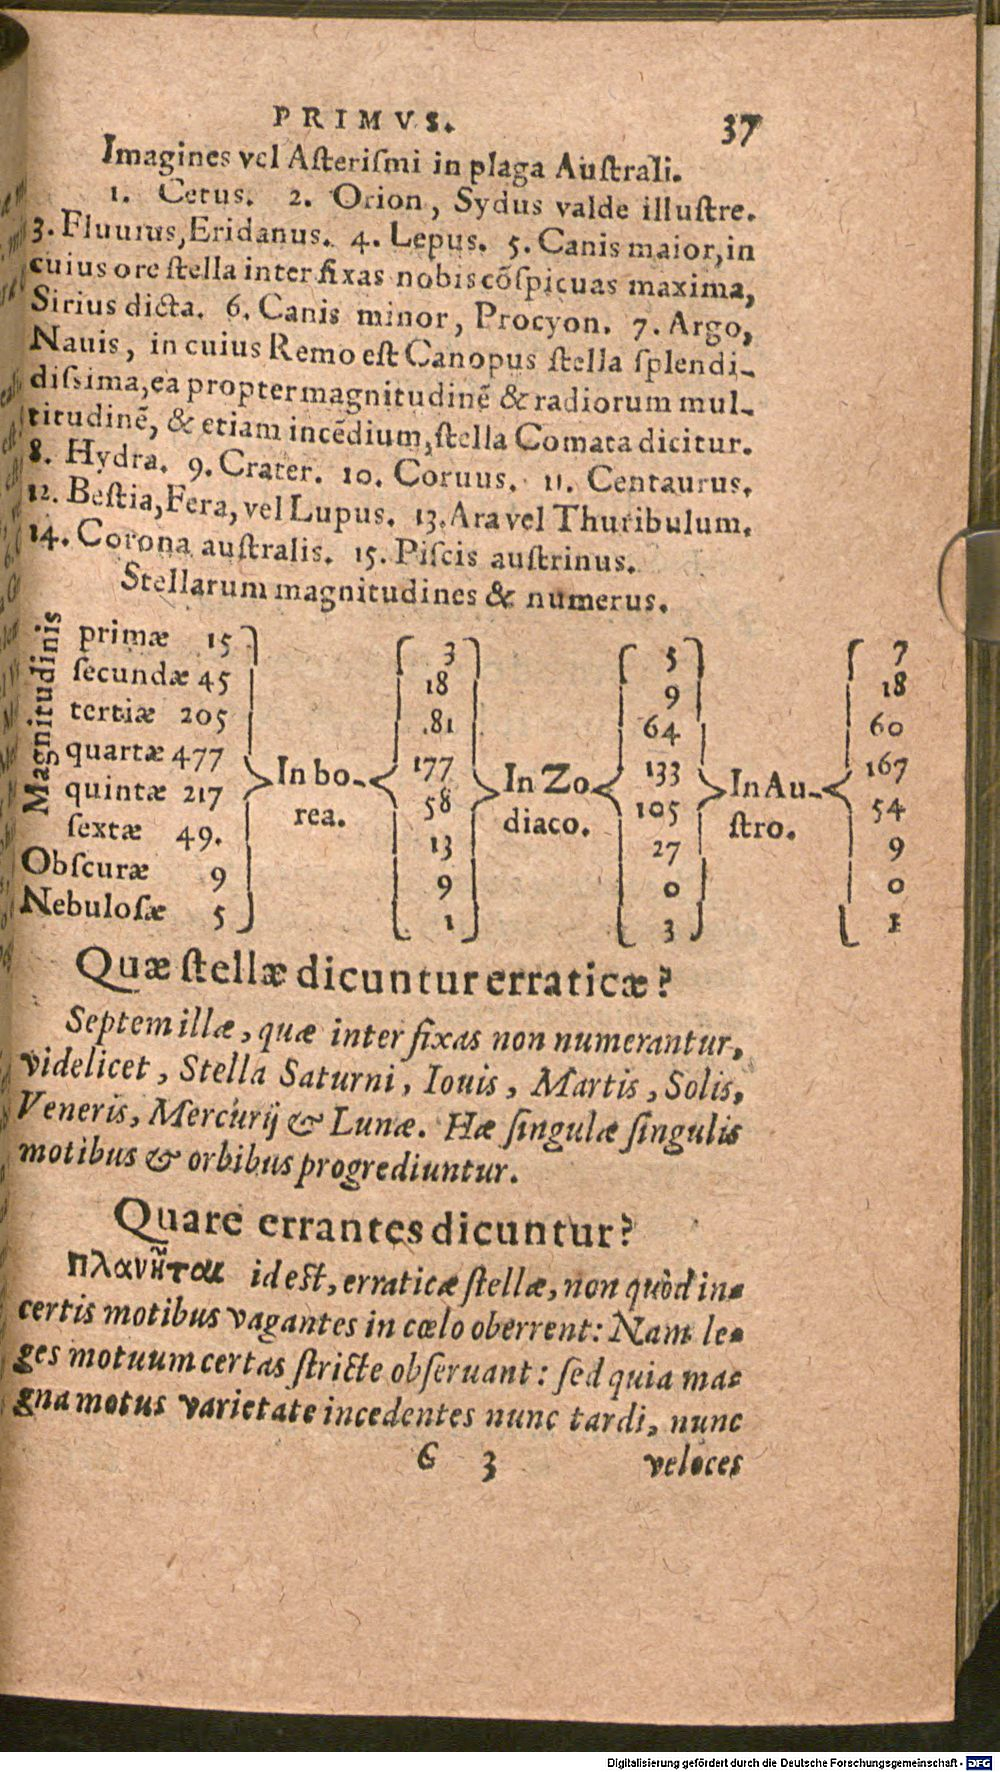 PRIMVS. 37
Imagines vel Aſteriſmi in plaga Auſtrali.
1. Cetus. 2. Orion, Sydus valde illuſtre.
3. Fluuius, Eridanus. 4. Lepus. 5. Canis maior, in
cuius ore ſtella inter fixas nobis cõſpicuas maxima,
Sirius dicta. 6. Canis minor, Procyon. 7. Argo,
Nauis, in cuius Remo eſt Canopus ſtella ſplendi-
diſsima, ea propter magnitudinẽ & radiorum mul-
titudinẽ, & etiam incẽdium, ſtella Comata dicitur.
8. Hydra. 9. Crater. 10. Coruus. 11. Centaurus.
12. Beſtia, Fera, vel Lupus. 13. Ara vel Thuribulum.
14. Corona auſtralis. 15. Piſcis auſtrinus.
Stellarum magnitudines & numerus.
Magnitudinis
primæ 15 3 5 7
ſecundæ 45 18 9 18
tertiæ 205 .81 64 60
quartæ 477 177 133 167
In bo- In Zo In Au-
quintæ 217 58 105 54
rea. diaco. ſtro.
ſextæ 49. 13 27 9
Obſcuræ 9 9 0 0
Nebuloſæ 5 1 3 1
Quæ ſtellæ dicuntur erraticæ?
Septem illæ, quæ inter fixas non numerantur,
videlicet, Stella Saturni, Iouis, Martis, Solis,
Veneris, Mercurij & Lunæ. Hæ ſingulæ ſingulis
motibus & orbibus progrediuntur.
Quare errantes dicuntur?
πλανῆται id eſt, erraticæ ſtellæ, non quòd in-
certis motibus vagantes in cœlo oberrent: Nam le-
ges motuum certas ſtricte obſeruant: ſed quia ma-
gna motus varietate incedentes nunc tardi, nunc
C 3 veloces
Digitalisierung gefördert durch die Deutsche Forschungsgemeinschaft - DFG